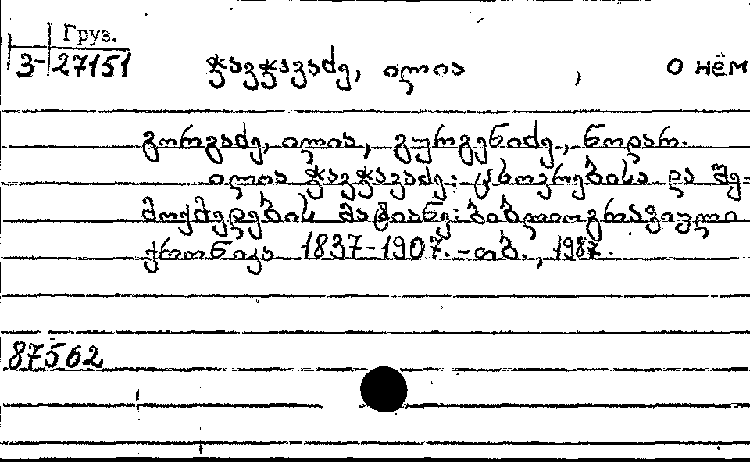 Груз.
3-27151
ჭავჭავაძე, ილია , о нём
გორგაძე, ილია, გურგენიძე, ნოდარ.
ილია ჭავჭავაძე: ცხოვრებისა და შე-
მოქმედების მატიანე: ბიბლიოგრაფიული
ქრონიკა 1837-1907. - თბ., 1987.
87562